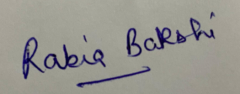 Rabia Bakshi